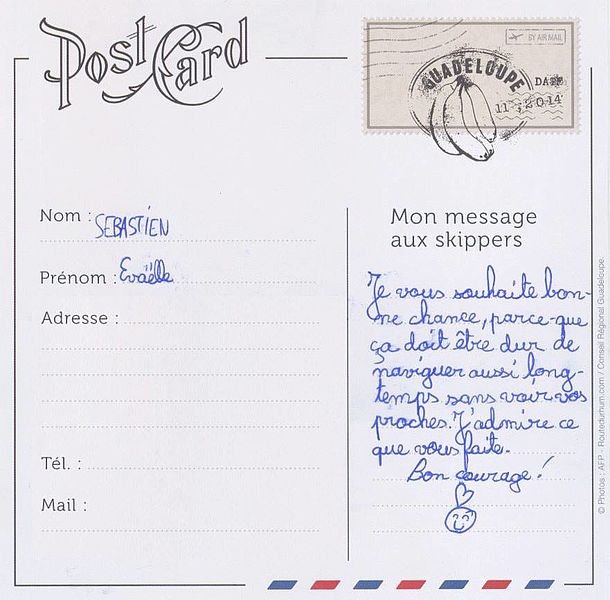 Post Card
BY AIR MAIL
GUADELOUPE
DATE
11 2014
Nom : SEBASTIEN
Prénom : Evaëlle
Adresse :
Tél. :
Mail :
Mon message
aux skippers
Je vous souhaite bon-
ne chance, parce-que
ça doit être dur de
naviguer aussi long-
temps sans voir vos
proches. J'admire ce
que vous faite.
Bon courage !
© Photos : AFP - Routedurhum.com / Conseil Régional Guadeloupe.